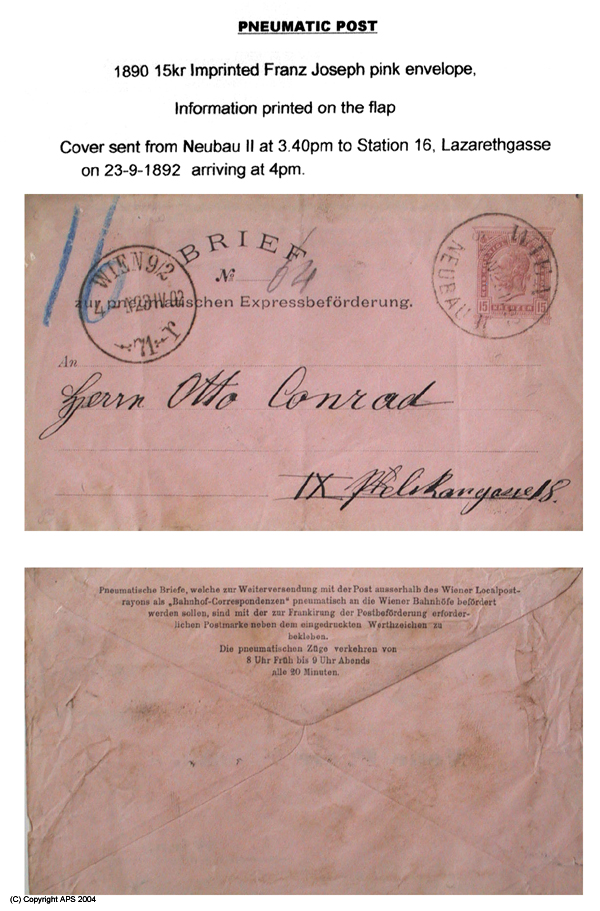 PNEUMATIC POST
1890 15kr Imprinted Franz Joseph pink envelope,
Information printed on the flap
Cover sent from Neubau II at 3.40pm to Station 16, Lazarethgasse
on 23-9-1892 arriving at 4pm.
16
BRIEF
WIEN
NEUBAU II
15 15
WIEN 9/2
71
№ 64
zur pneumatischen Expressbeförderung.
An
Herrn Otto Conrad
IX 18.
Pneumatische Briefe, welche zur Weiterversendung mit der Post ausserhalb des Wiener Localpost-
rayons als „Bahnhof-Correspondenzen" pneumatisch an die Wiener Bahnhöfe befördert
werden sollen, sind mit der zur Frankirung der Postbeförderung erforder-
lichen Postmarke neben dem eingedruckten Werthzeichen zu
bekleben.
Die pneumatischen Züge verkehren von
8 Uhr Früh bis 9 Uhr Abends
alle 20 Minuten.
(C) Copyright APS 2004